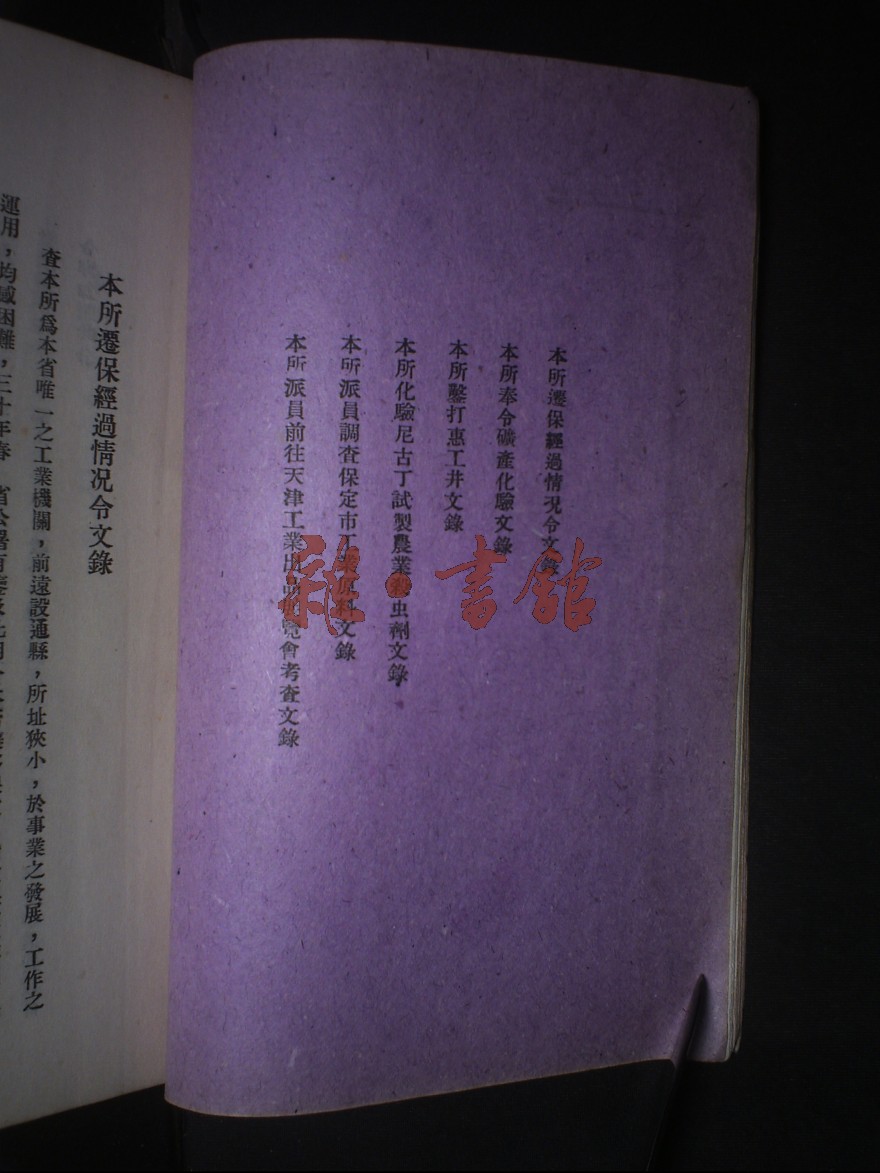 本所遷保經過情況令文錄
本所奉令礦產化驗文錄
本所鑿打惠工井文錄
本所化驗尼古丁試製農業殺虫劑文錄
本所派員調查保定市工業原料文錄
本所派員前往天津工業出品展覽會考查文錄
雜·書館
本所遷保經過情況令文錄
查本所爲本省唯一之工業機關，前遠設通縣，所址狹小，於事業之發展，工作之
運用，均感困難，三十年春